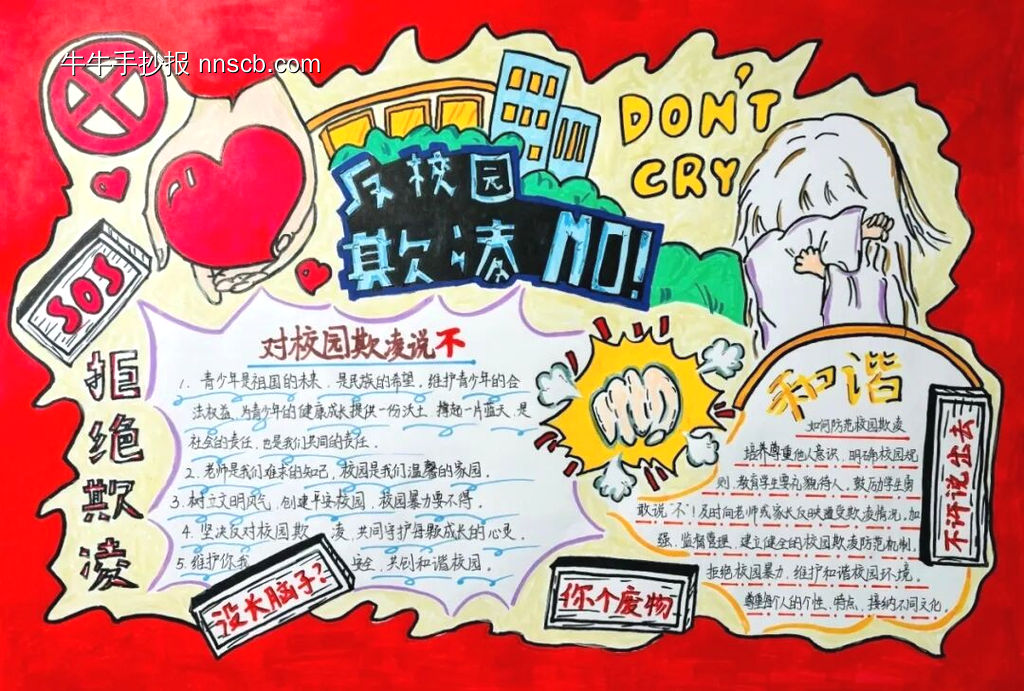 牛牛手抄报 nnscb.com
DON'T
CRY
反校园
欺凌 NO!
SOS
拒绝欺凌
对校园欺凌说不
1. 青少年是祖国的未来，是民族的希望，维护青少年的合
法权益，为青少年的健康成长提供一份沃土，撑起一片蓝天，是
社会的责任，也是我们共同的责任。
2. 老师是我们难求的知己，校园是我们温馨的家园。
3. 树立文明风气，创建平安校园，校园暴力要不得。
4. 坚决反对校园欺 凌，共同守护每颗成长的心灵
5. 维护你我 安全，共创和谐校园。
没长脑子？
你个废物
和谐
如何防范校园欺凌
培养尊重他人意识，明确校园规
则，教育学生要礼貌待人，鼓励学生勇
敢说“不”！及时向老师或家长反映遭受欺凌情况。加
强，监督管理，建立健全的校园欺凌防范机制。
拒绝校园暴力，维护和谐校园环境。
尊重每个人的个性、特点，接纳不同文化。
不许说出去